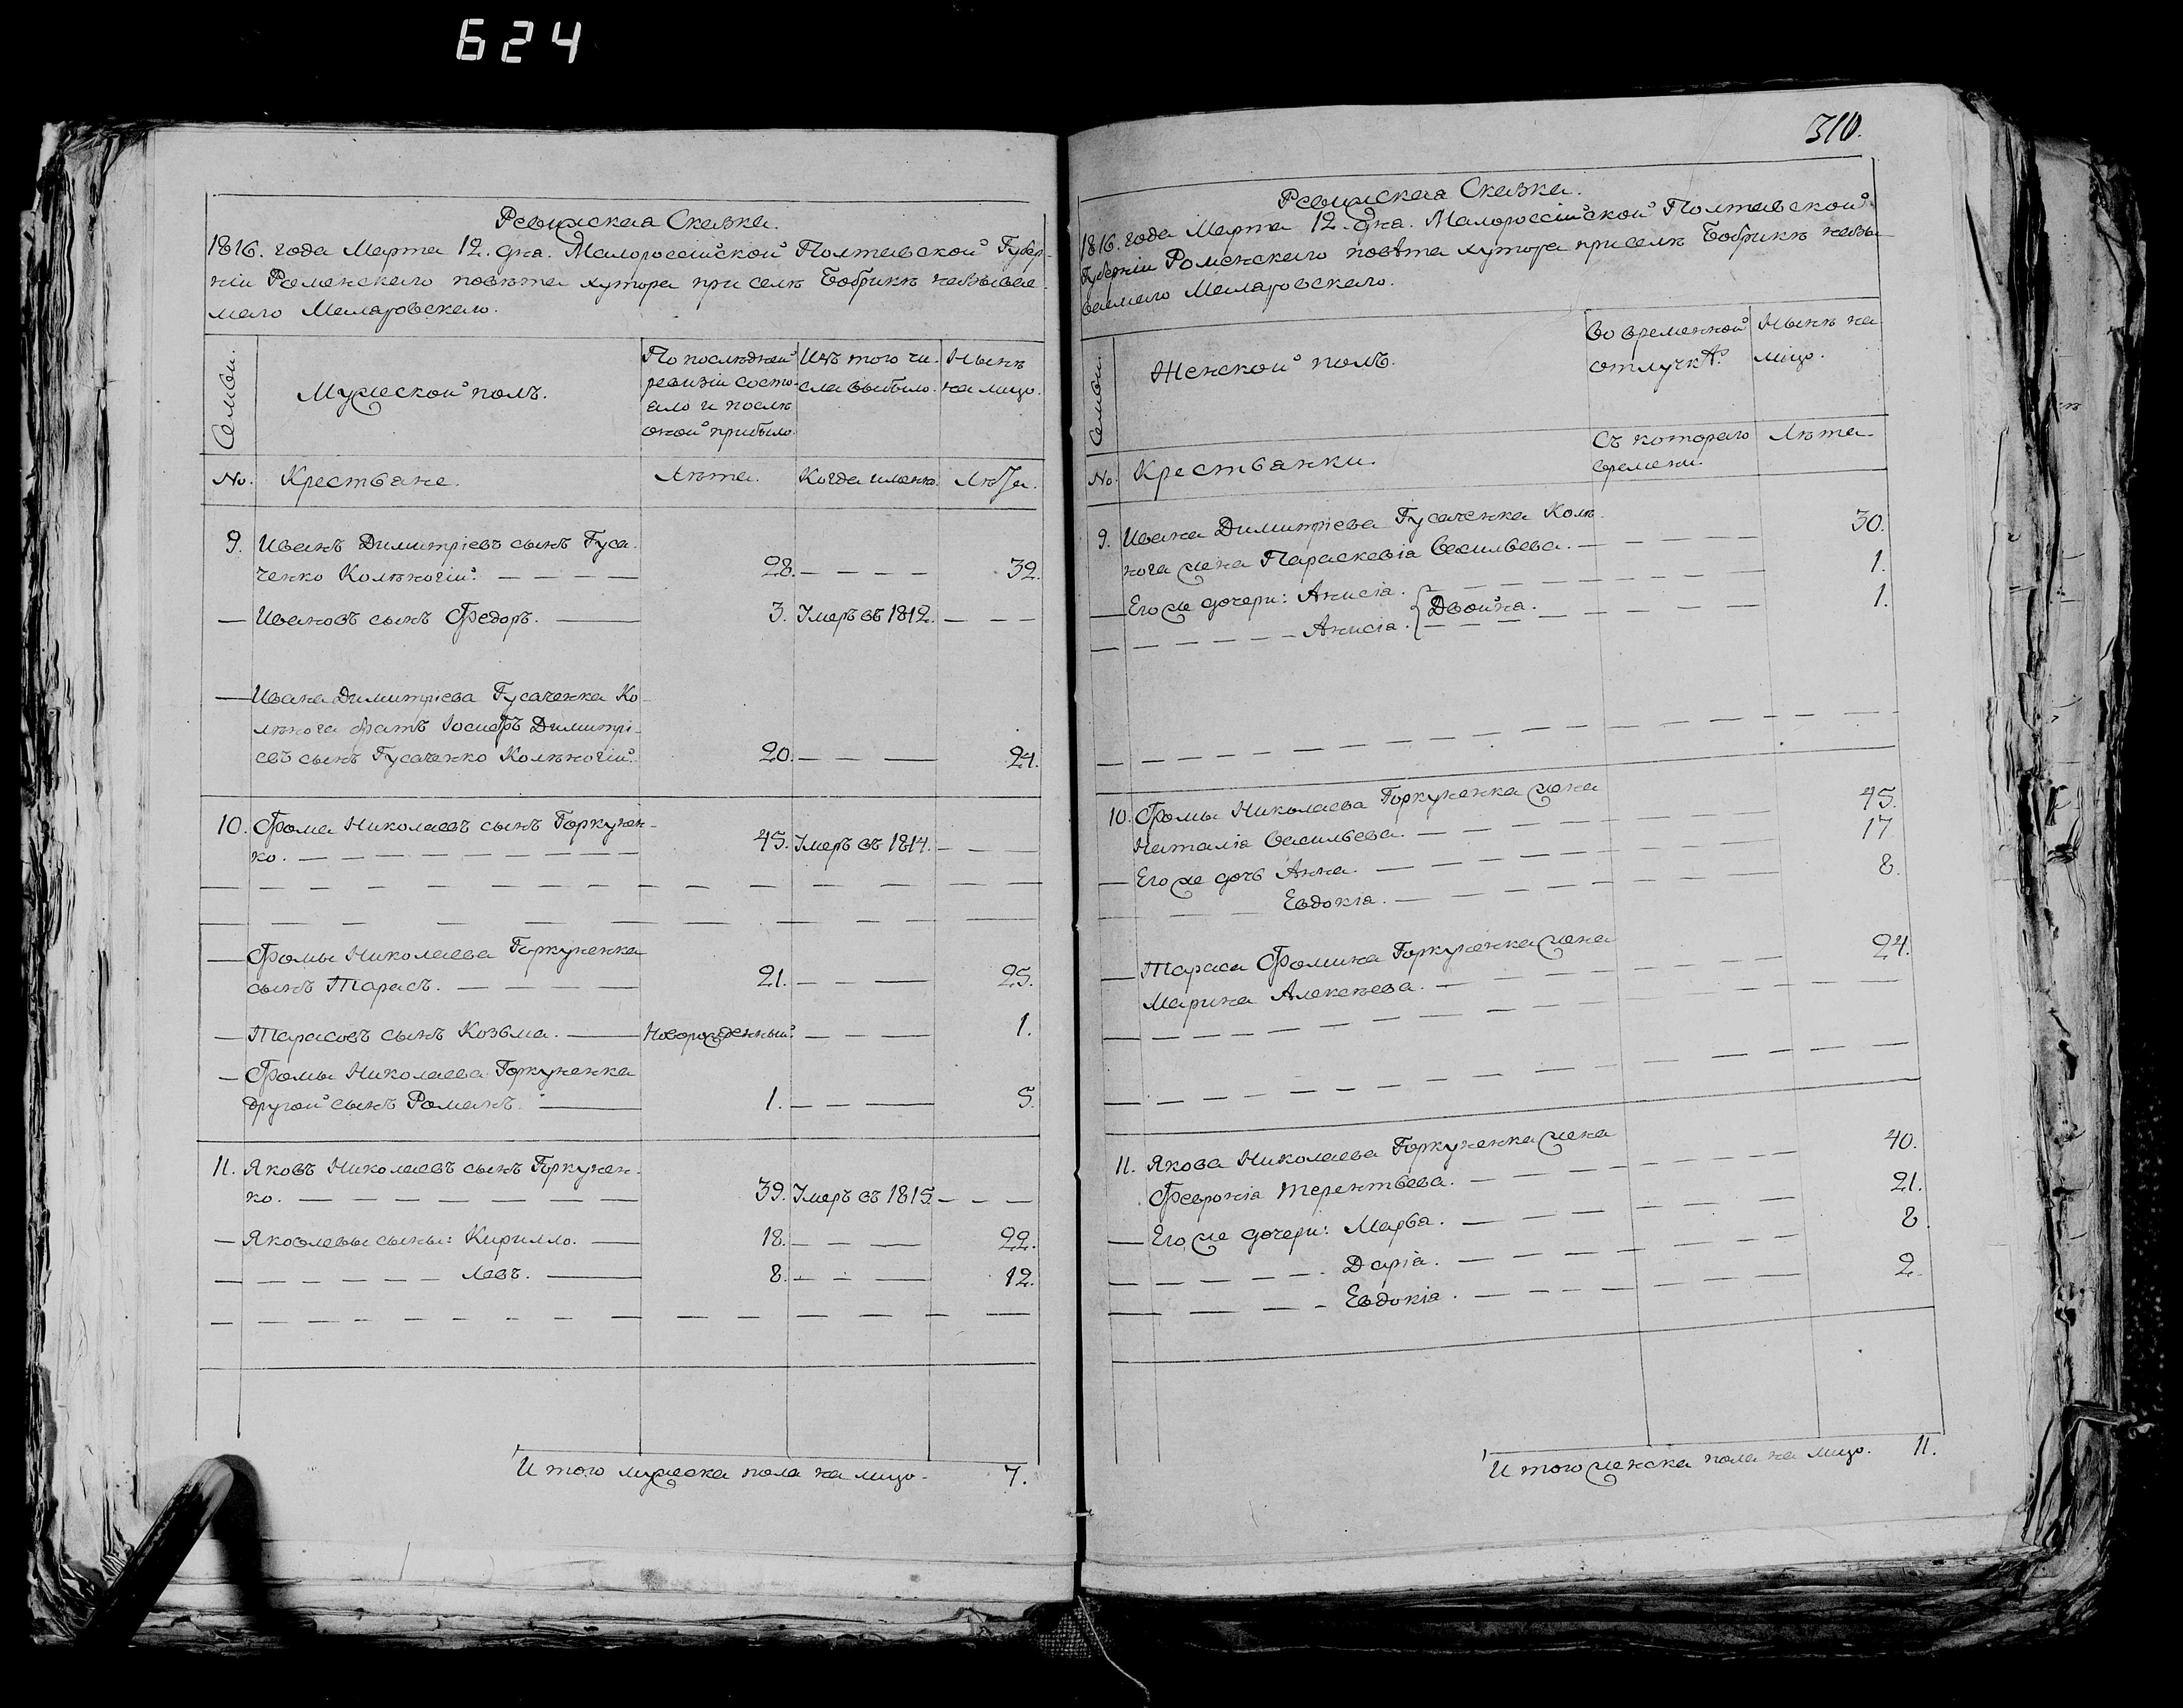 624
Ревижская Сказка.
1816. года Марта 12. дня. Малороссійской Полтавской Губер-
ніи Роменскаго повѣта хутора при селѣ Бобрикѣ называе-
маго Маларовскаго.
Семьи.
Мужеской полъ.
По послѣдней
ревизіи состо-
яло и послѣ
оной прибыло.
Изъ того чи-
сла выбыло.
Нынѣ
на лицо.
No. Крестьяне. Лѣта. Когда именно. Лѣта.
9. Иванъ Димитріевъ сынъ Гуса-
ченко Колѣногій. 28. 32.
Ивановъ сынъ Федоръ. 3. Умеръ въ 1812.
Ивана Димитріева Гусаченка Ко-
лѣнога братъ Іосифъ Димитрі-
евъ сынъ Гусаченко Колѣногій. 20. 24.
10. Фома Николаевъ сынъ Горкунен-
ко. 45. Умеръ въ 1814.
Фомы Николаева Горкуненка
сынъ Тарасъ. 21. 25.
Тарасовъ сынъ Козьма. Новорожденный. 1.
Фомы Николаева Горкуненка
другой сынъ Романъ. 1. 5.
11. Яковъ Николаевъ сынъ Горкунен-
ко. 39. Умеръ въ 1815.
Яковлевы сыны: Кирилло. 18. 22.
Левъ. 8. 12.
И того мужеска пола на лицо. 7.
310.
Ревижская Сказка.
1816. года Марта 12. дня. Малороссійской Полтавской
Губерніи Роменскаго повѣта хутора при селѣ Бобрикѣ назы-
ваемаго Маларовскаго.
Семьи.
Женской полъ.
Во временной
отлучкѣ.
Нынѣ на
лицо.
No. Крестьянки.
Съ котораго
времени.
Лѣта.
9. Ивана Димитріева Гусаченка Колѣ-
нога жена Параскевія Васильева. 30.
Его же дочери: Анисія. 1.
Двойна.
Анисія. 1.
10. Фомы Николаева Горкуненка жена
Наталія Васильева. 45.
Его же дочь Анна. 17.
Евдокія. 8.
Тараса Фомина Горкуненка жена
Марина Алексѣева. 24.
11. Якова Николаева Горкуненка жена
Февронія Терентьева. 40.
Его же дочери: Марѳа. 21.
Дарія. 8.
Евдокія. 2.
И того женска пола на лицо. 11.